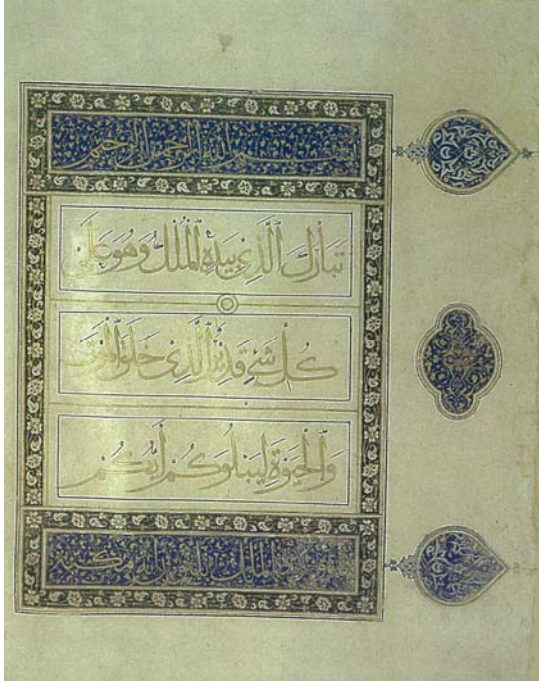 بسم الله الرحمن الرحيم
تَبَارَكَ الَّذِي بِيَدِهِ الْمُلْكُ وَهُوَ عَلَى
كُلِّ شَيْءٍ قَدِيرٌ الَّذِي خَلَقَ الْمَوْتَ
وَالْحَيَوٰةَ لِيَبْلُوَكُمْ أَيُّكُمْ